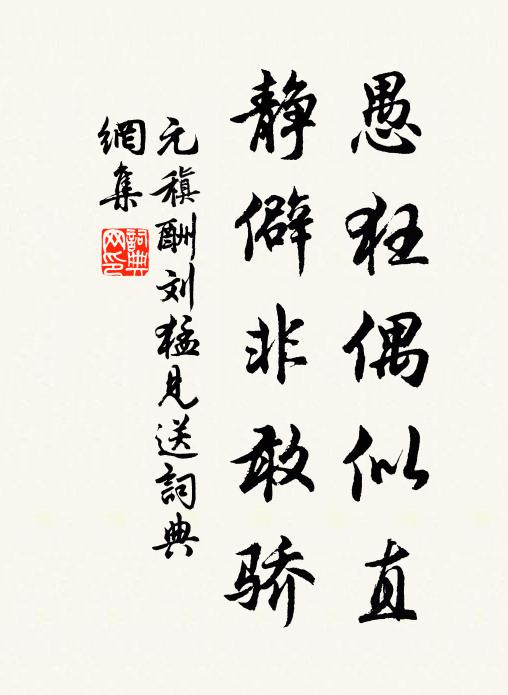 愚狂偶似直
静僻非敢骄
元稹酬刘猛见送詞典
網集
詞典
网印